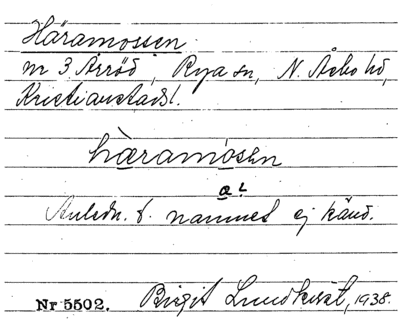 Häramossen
nr 3 Arröd, Rya sn, N. Åsbo hd,
Kristianstads l.
hæramosen
a!
Anledn. t. namnet ej känd.
Nr 5502. Birgit Lundkvist, 1938.